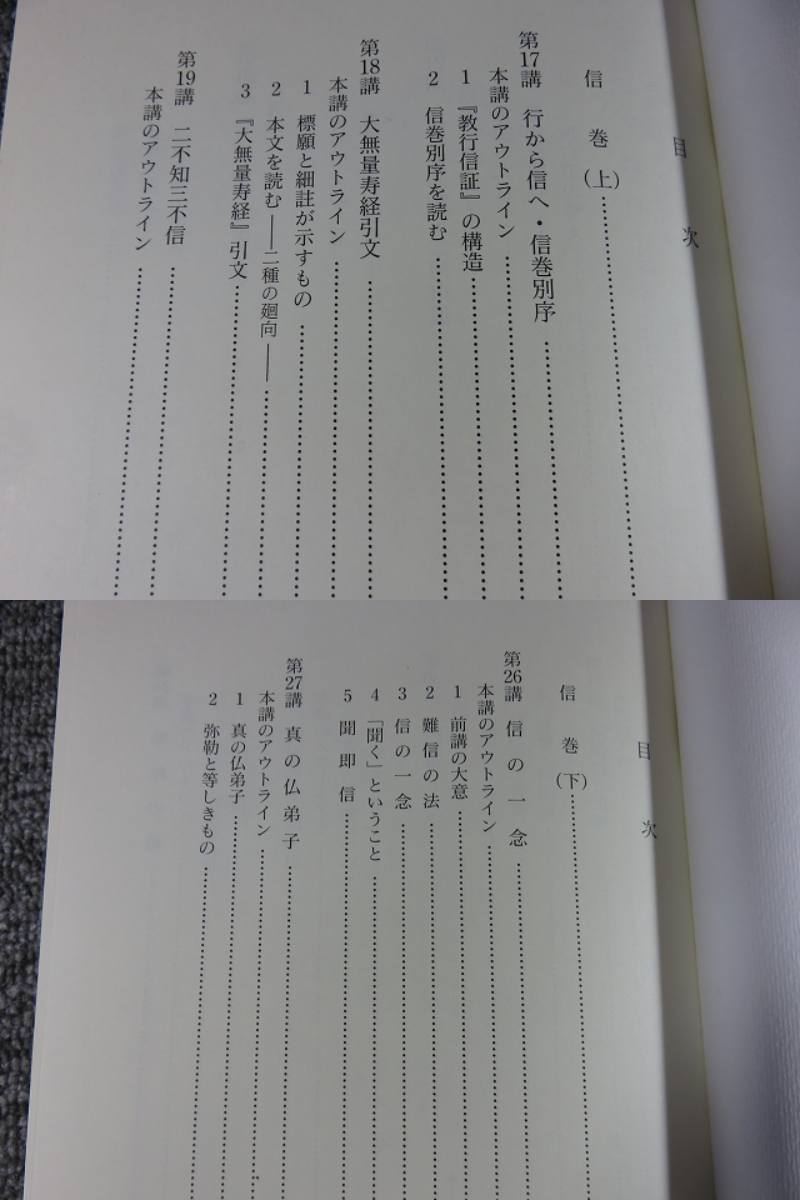 目次
信巻(上)
第17講 行から信へ・信巻別序
本講のアウトライン
1 『教行信証』の構造
2 信巻別序を読む
第18講 大無量寿経引文
本講のアウトライン
1 標願と細註が示すもの
2 本文を読む――二種の廻向――
3 『大無量寿経』引文
第19講 二不知三不信
本講のアウトライン
目次
信巻(下)
第26講 信の一念
本講のアウトライン
1 前講の大意
2 難信の法
3 信の一念
4 「聞く」ということ
5 聞即信
第27講 真の仏弟子
本講のアウトライン
1 真の仏弟子
2 弥勒と等しきもの